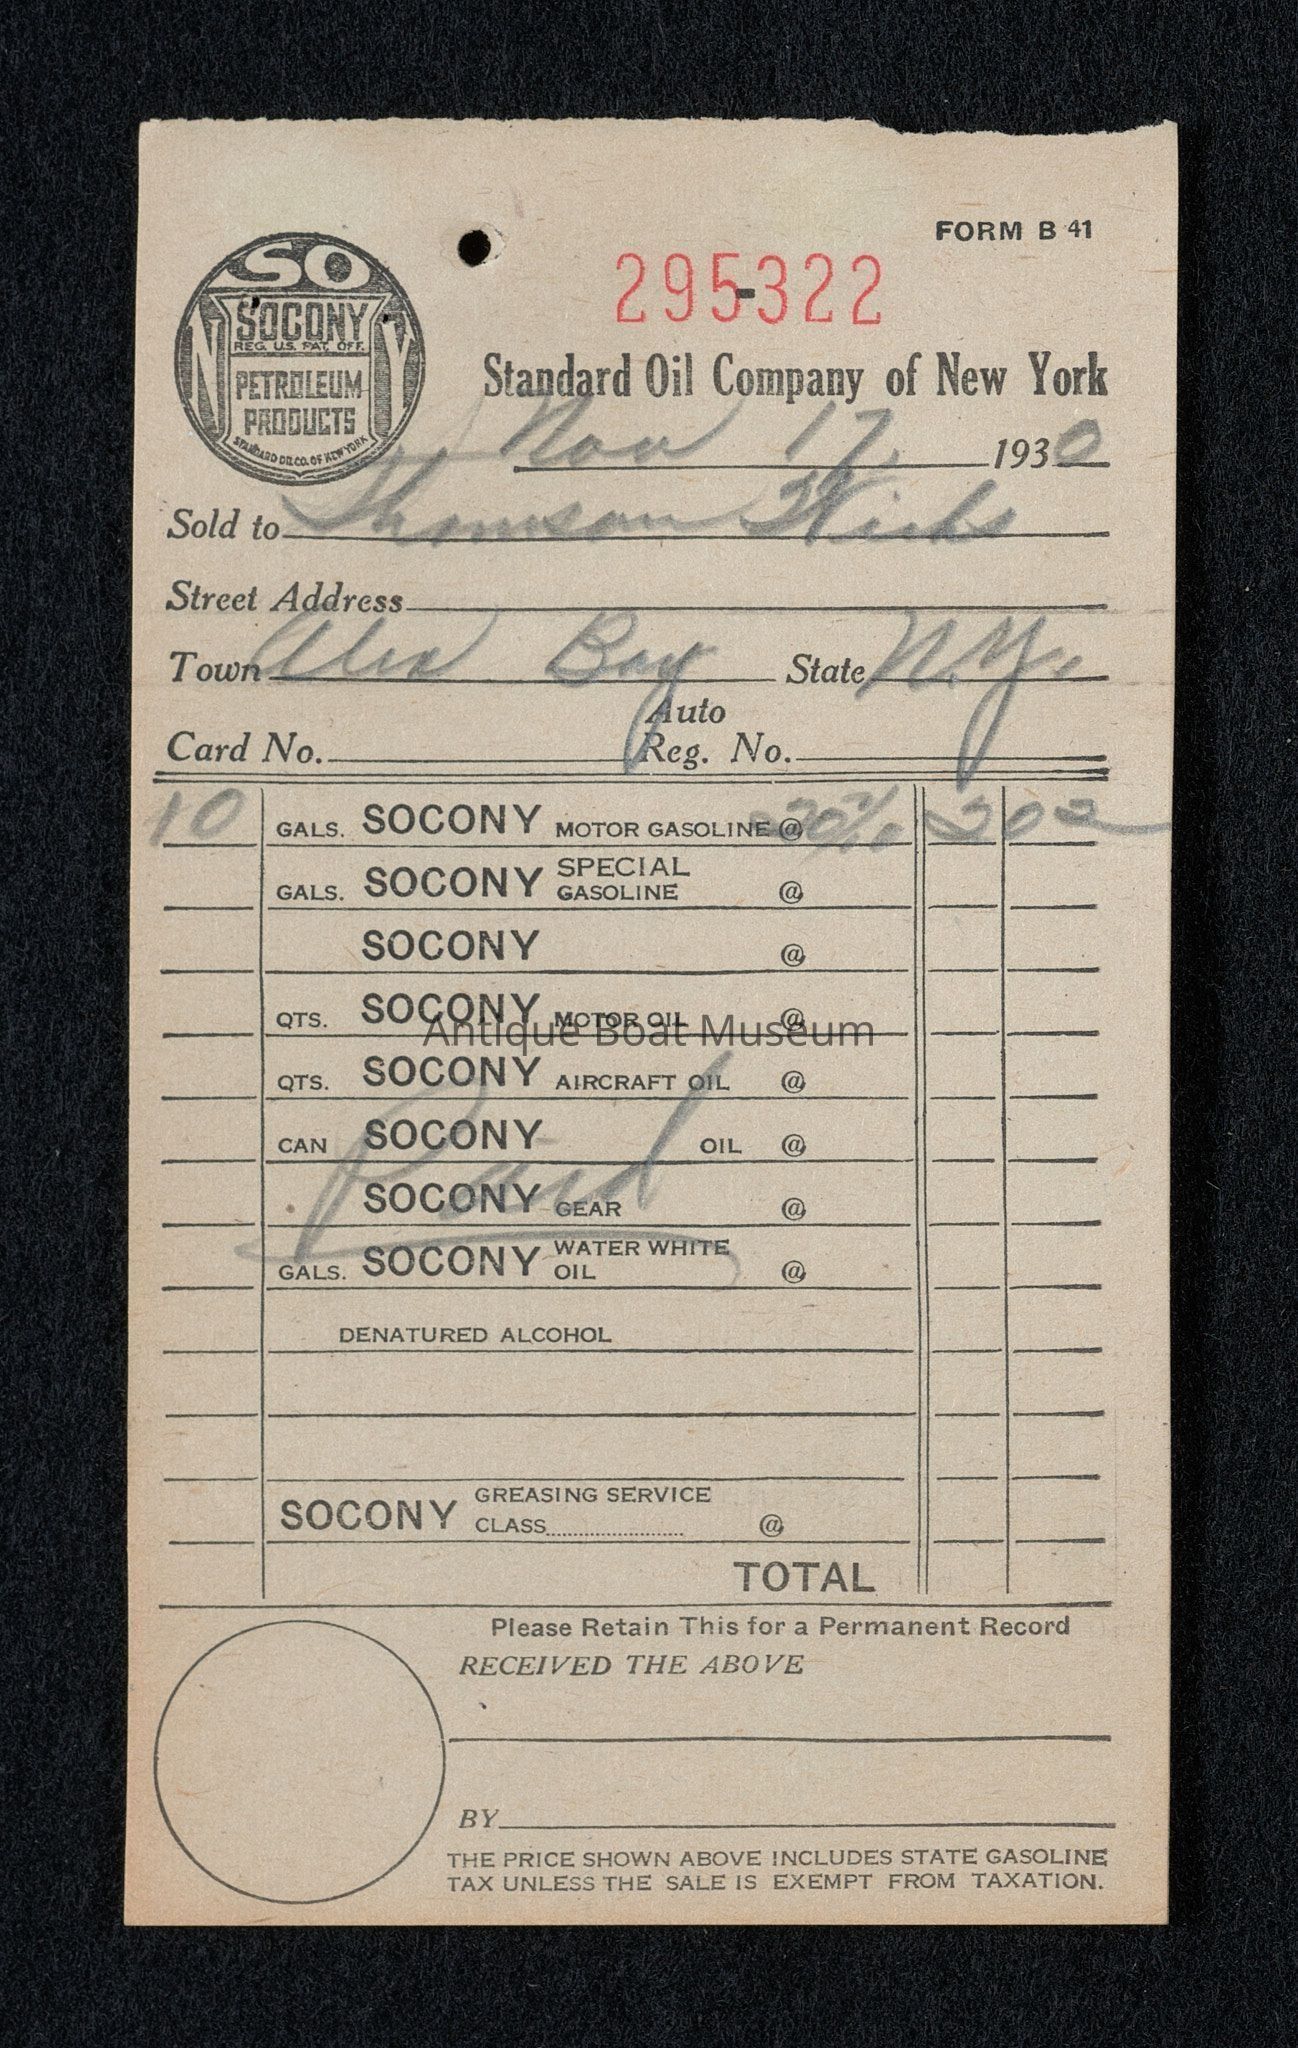 FORM B 41
SO
N Y
SOCONY
REG. U.S. PAT. OFF.
PETROLEUM
PRODUCTS
STANDARD OIL CO. OF NEW YORK
295-322
Standard Oil Company of New York
Nov 17, 1930
Sold to Thomson
Street Address
Town Alex Bay State N.Y.
Card No. Auto Reg. No.
10 GALS. SOCONY MOTOR GASOLINE @ 202
GALS. SOCONY SPECIAL GASOLINE @
SOCONY @
QTS. SOCONY MOTOR OIL @
Antique Boat Museum
QTS. SOCONY AIRCRAFT OIL @
CAN SOCONY OIL @
Paid
SOCONY GEAR @
GALS. SOCONY WATER WHITE OIL @
DENATURED ALCOHOL
SOCONY GREASING SERVICE
CLASS @
TOTAL
Please Retain This for a Permanent Record
RECEIVED THE ABOVE
BY
THE PRICE SHOWN ABOVE INCLUDES STATE GASOLINE
TAX UNLESS THE SALE IS EXEMPT FROM TAXATION.